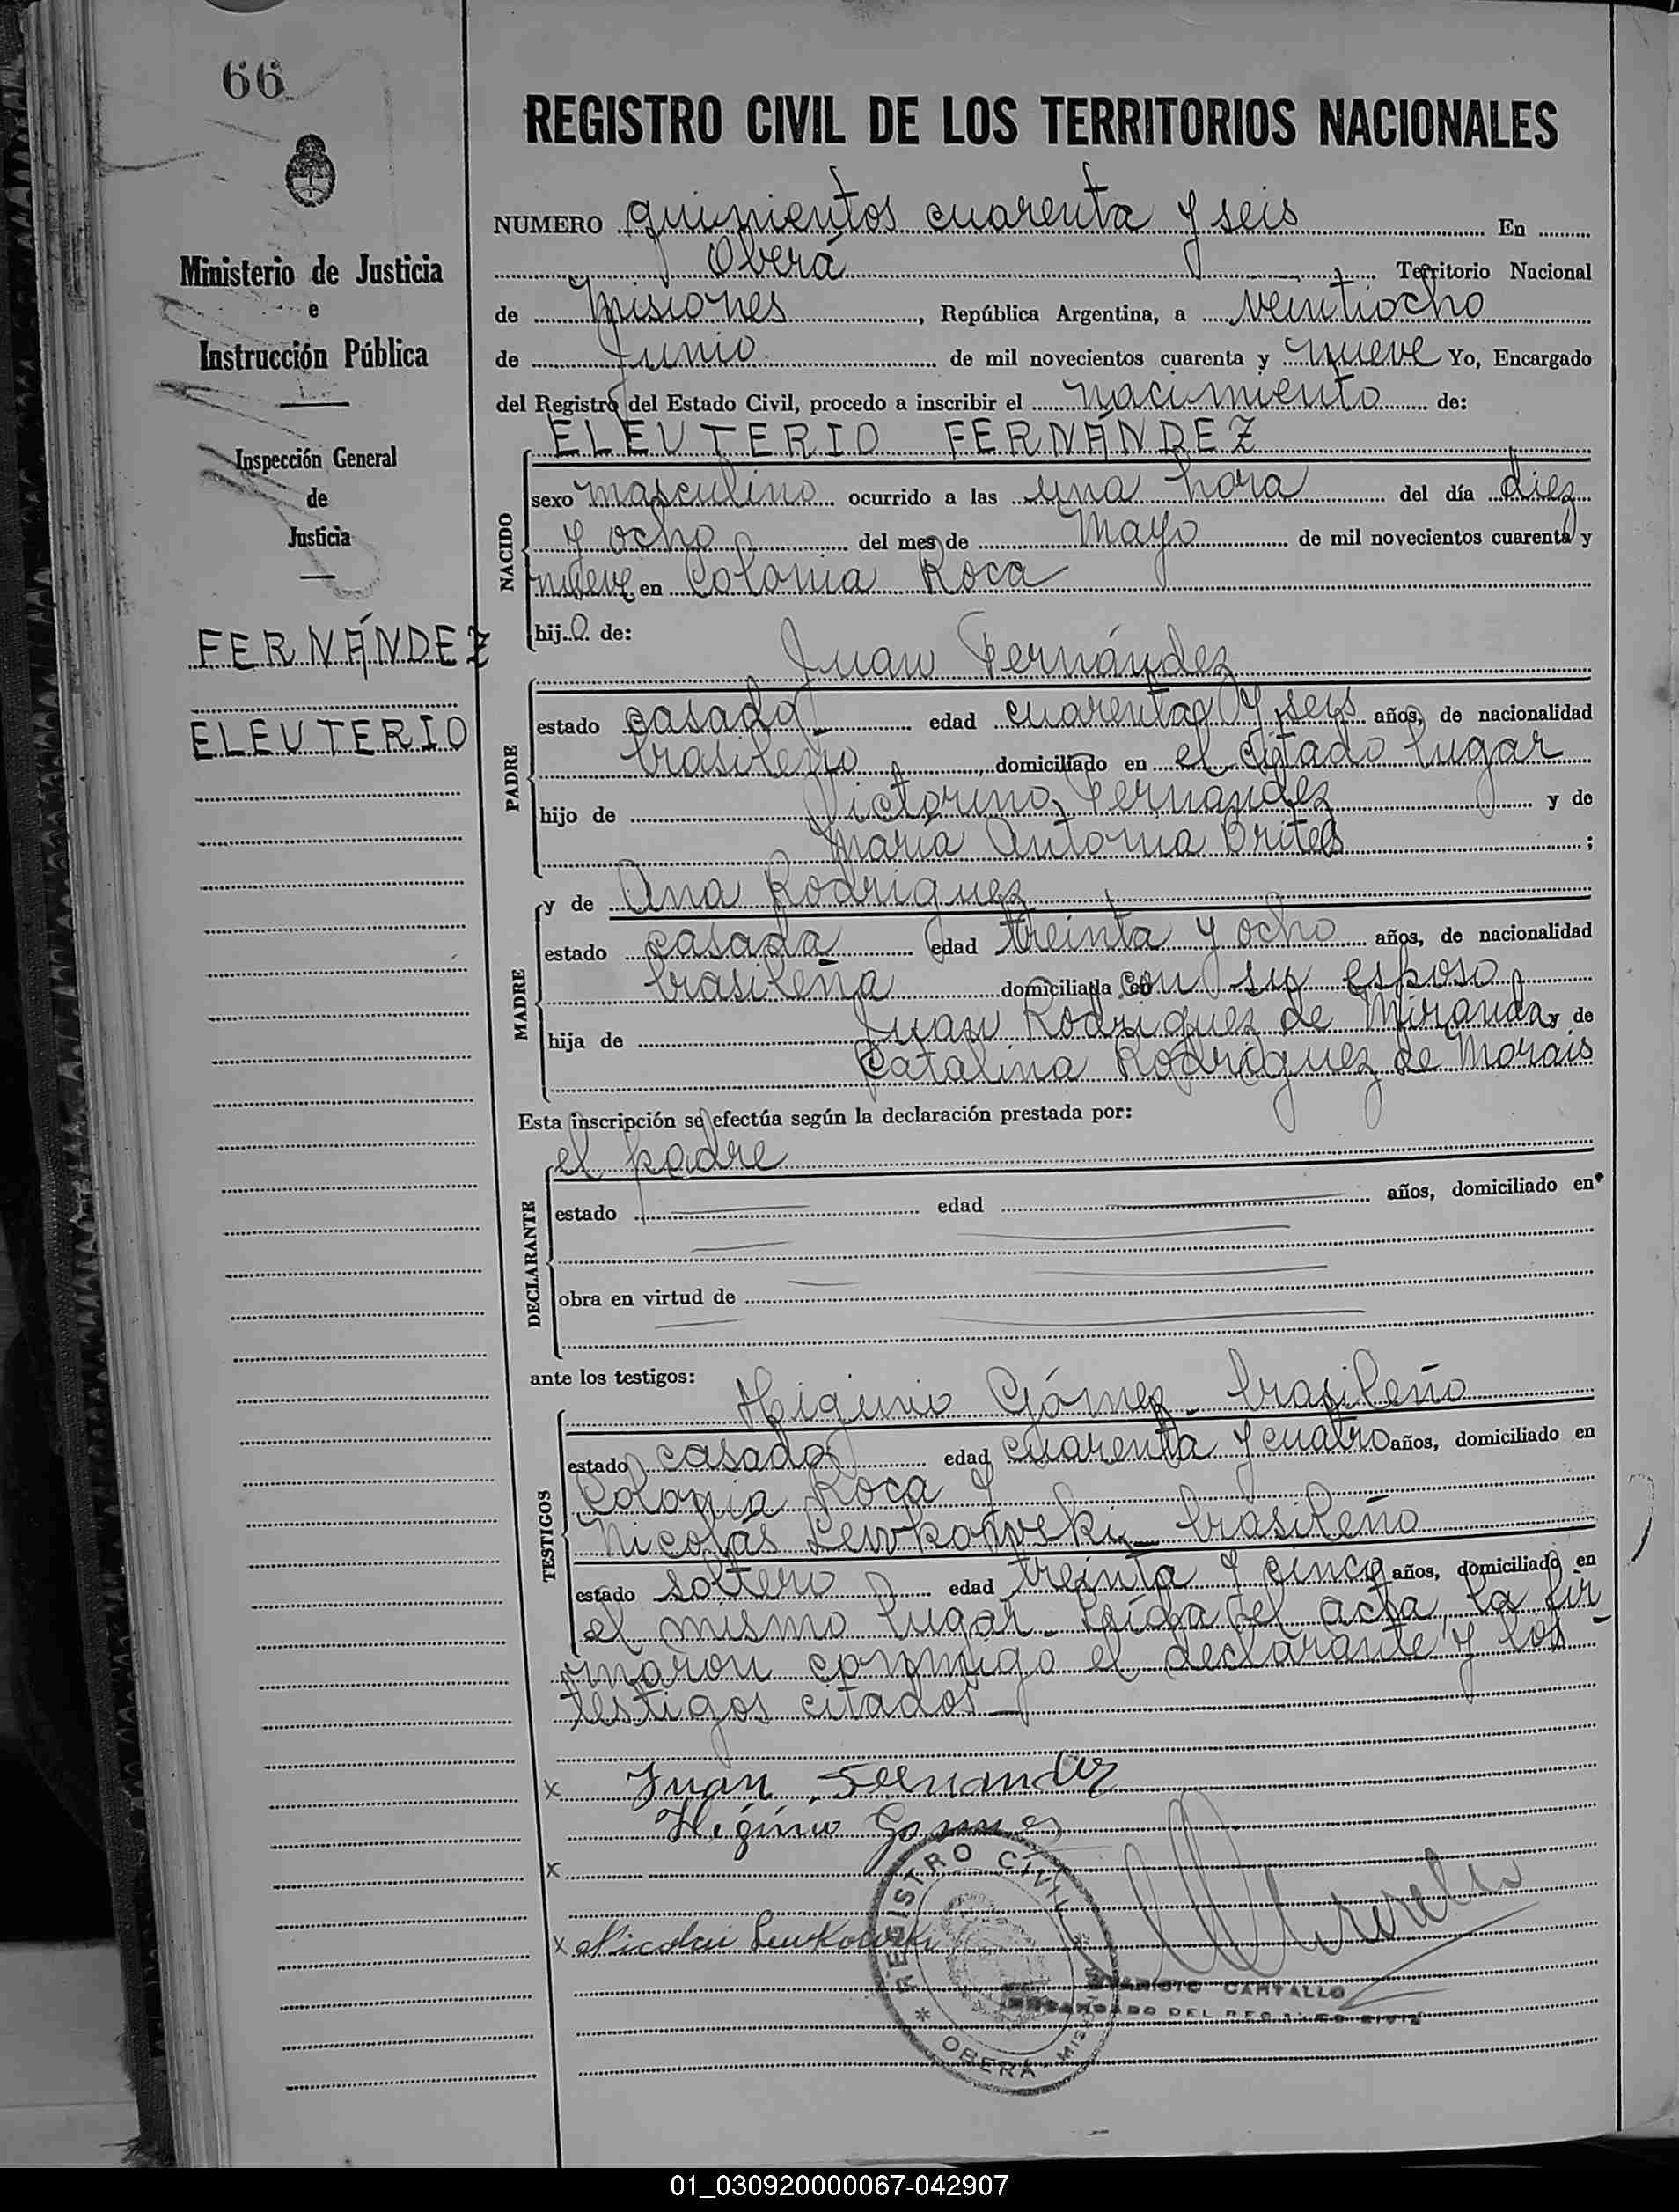 66
REGISTRO CIVIL DE LOS TERRITORIOS NACIONALES
Ministerio de Justicia
e
Instrucción Pública
Inspección General
de
Justicia
FERNÁNDEZ
ELEUTERIO
NUMERO quinientos cuarenta y seis En
Oberá Territorio Nacional
de Misiones, República Argentina, a veintiocho
de Junio de mil novecientos cuarenta y nueve Yo, Encargado
del Registro del Estado Civil, procedo a inscribir el nacimiento de:
ELEUTERIO FERNÁNDEZ
NACIDO
sexo masculino ocurrido a las una hora del día diez
y ocho del mes de Mayo de mil novecientos cuarenta y
nueve en Colonia Roca
hijo de:
Juan Fernández
PADRE
estado casado edad cuarenta y seis años, de nacionalidad
brasileño, domiciliado en el citado lugar
hijo de Victorino Fernandez y de
María Antonia Brites;
MADRE
y de Ana Rodriguez
estado casada edad treinta y ocho años, de nacionalidad
brasileña domiciliada con su esposo
hija de Juan Rodriguez de Miranda y de
Catalina Rodriguez de Morais
Esta inscripción se efectúa según la declaración prestada por:
el padre
DECLARANTE
estado edad años, domiciliado en
obra en virtud de
ante los testigos:
Higinio Gómez - brasileño
TESTIGOS
estado casado edad cuarenta y cuatro años, domiciliado en
Colonia Roca y
Nicolás Lewkowski - brasileño
estado soltero edad treinta y cinco años, domiciliado en
el mismo lugar - Leída el acta, la fir
maron conmigo el declarante y los
testigos citados
x Juan Fernandez
Higinio Gomes
x
x Nicolau Lewkowski
REGISTRO CIVIL
OBERÁ
CARVALLO
ENCARGADO DEL REGISTRO CIVIL
01_030920000067-042907